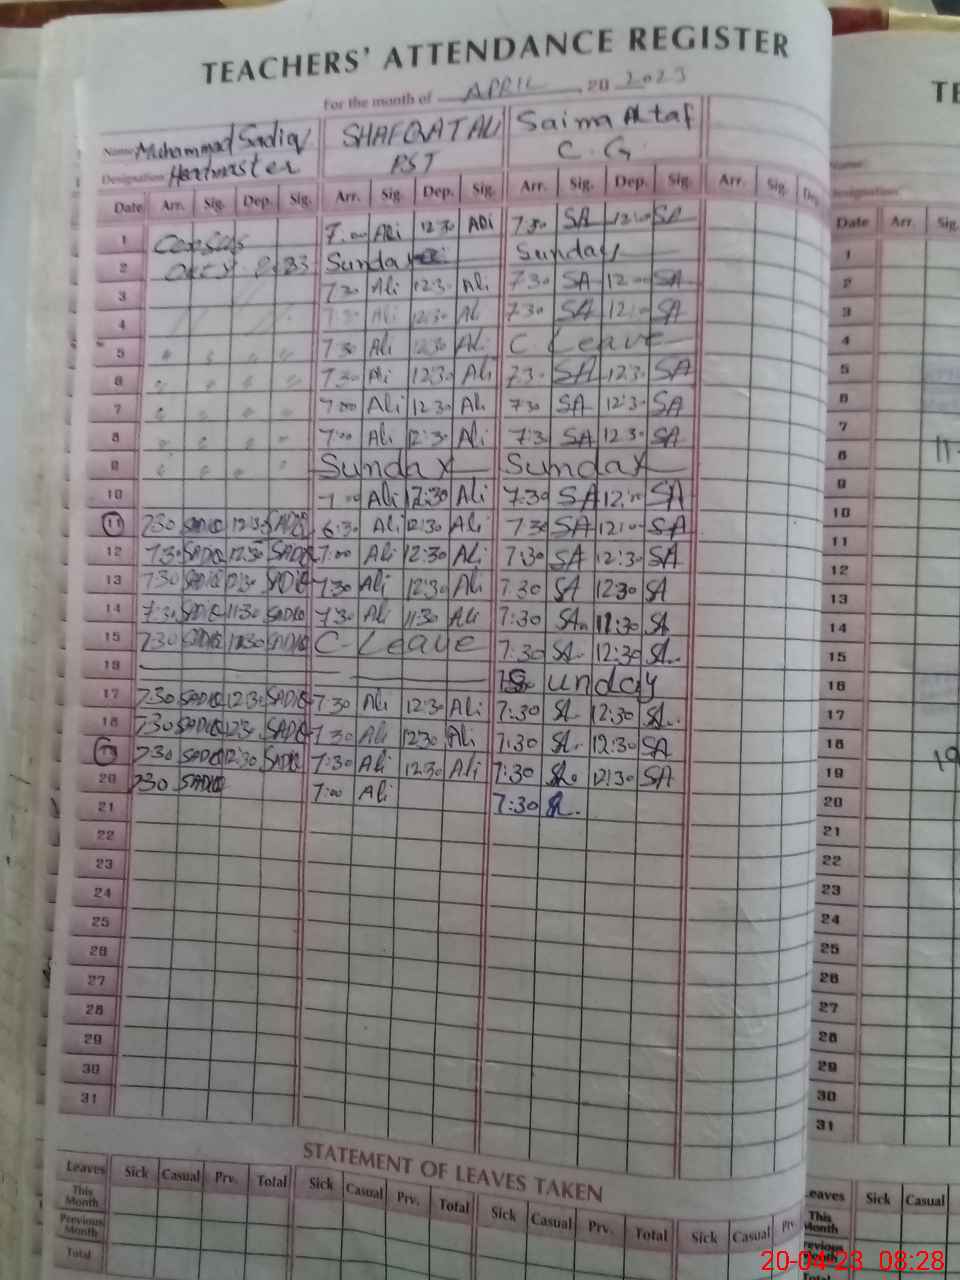 TEACHERS' ATTENDANCE REGISTER
For the month of APRIL 20 2023
Name Muhammad Sadiq SHAFQAT ALI Saima Altaf
Designation Headmaster PST C.G.
Date Arr. Sig. Dep. Sig. Arr. Sig. Dep. Sig. Arr. Sig. Dep. Sig. Arr. Sig. Dep.
1 7:00 Ali 12:30 Ali 7:30 SA 12:00 SA
2 Sunday Sunday
3 7:30 Ali 12:30 Ali 7:30 SA 12:00 SA
4 7:30 Ali 12:30 Ali 7:30 SA 12:00 SA
5 " " " " 7:30 Ali 12:30 Ali C. Leave
6 " " " " 7:30 Ali 12:30 Ali 7:30 SA 12:30 SA
7 " " " " 7:00 Ali 12:30 Ali 7:30 SA 12:30 SA
8 " " " " 7:00 Ali 12:30 Ali 7:30 SA 12:30 SA
9 " " " " Sunday Sunday
10 7:00 Ali 12:30 Ali 7:30 SA 12:00 SA
11 7:30 SADIQ 12:30 SADIQ 6:30 Ali 12:30 Ali 7:30 SA 12:00 SA
12 7:30 SADIQ 12:30 SADIQ 7:00 Ali 12:30 Ali 7:30 SA 12:30 SA
13 7:30 SADIQ 12:30 SADIQ 7:30 Ali 12:30 Ali 7:30 SA 12:30 SA
14 7:30 SADIQ 11:30 SADIQ 7:30 Ali 11:30 Ali 7:30 SA 11:30 SA
15 7:30 SADIQ 12:30 SADIQ C-Leave 7:30 SA 12:30 SA
16 Sunday
17 7:30 SADIQ 12:30 SADIQ 7:30 Ali 12:30 Ali 7:30 SA 12:30 SA
18 7:30 SADIQ 12:30 SADIQ 7:30 Ali 12:30 Ali 7:30 SA 12:30 SA
19 7:30 SADIQ 12:30 SADIQ 7:30 Ali 12:30 Ali 7:30 SA 12:30 SA
20 7:30 SADIQ 7:00 Ali 7:30 SA
21
22
23
24
25
26
27
28
29
30
31
STATEMENT OF LEAVES TAKEN
Leaves Sick Casual Prv. Total Sick Casual Prv. Total Sick Casual Prv. Total Sick Casual Prv.
This Month
Previous Month
Total
TE
Name
Designation
Date Arr. Sig.
1
2
3
4
5
6
7
8
9
10
11
12
13
14
15
16
17
18
19
20
21
22
23
24
25
26
27
28
29
30
31
Leaves Sick Casual
This Month
Previous Month
Total
20-04-23 08:28